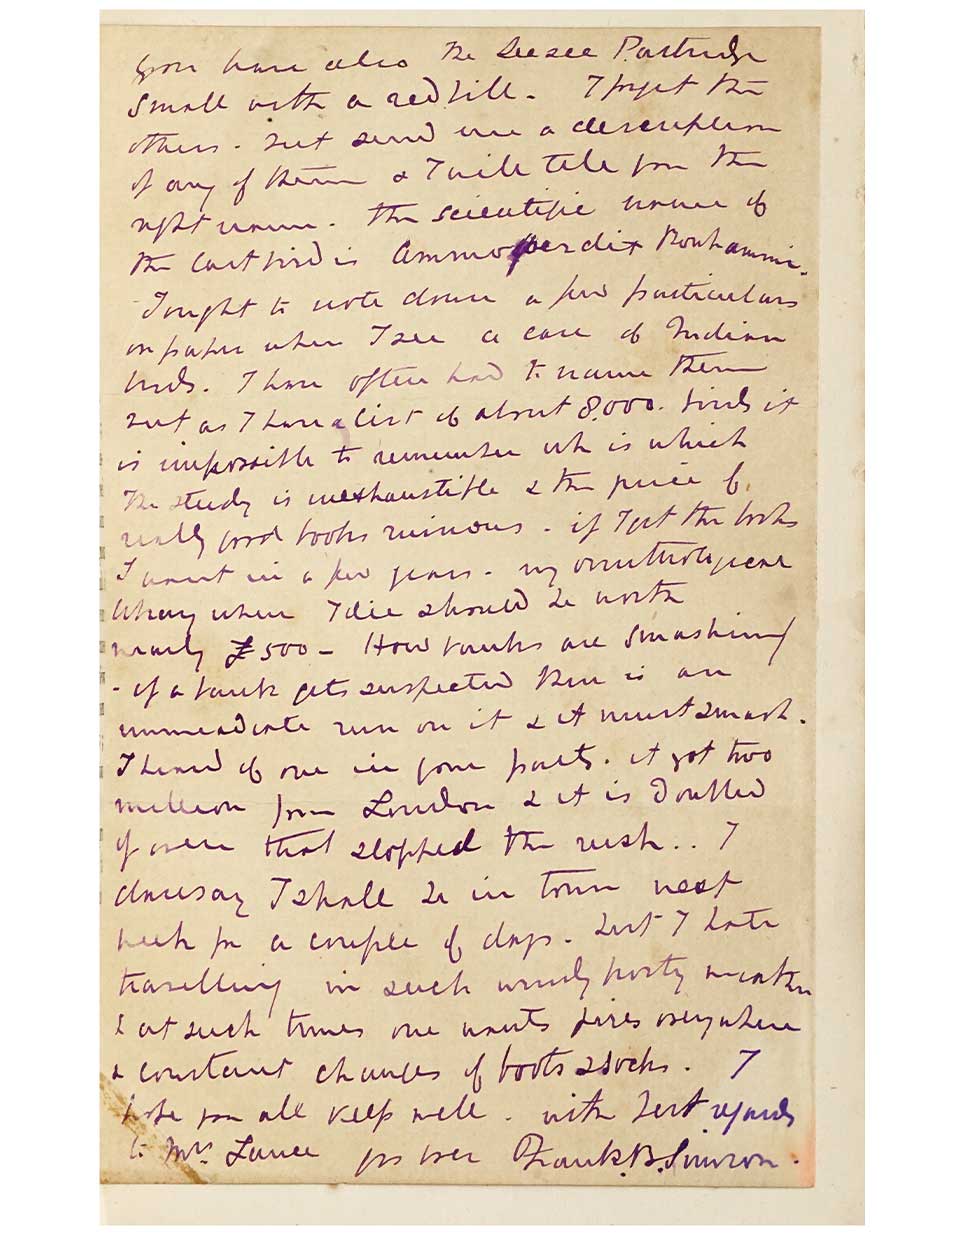 you have also the Seesee Partridge
small with a red bill. I forget the
others. but send me a description
of any of them & I will tell you the
right name. the scientific name of
the last bird is Ammoperdix Bonhammi.
I ought to note down a few particulars
on paper when I see a case of Indian
birds. I have often had to name them
but as I have a list of about 8,000. birds it
is impossible to remember wh is which
The study is inexhaustible & the price of
really good books ruinous. if I get the books
I want in a few years. my ornithological
library when I die should be worth
nearly £500 - How banks are smashing
- if a bank gets suspected there is an
immediate run on it & it must smash.
I heard of one in your parts. it got two
million from London & it is doubted
if even that stopped the rush.. I
daresay I shall be in town next
week for a couple of days. but I hate
travelling in such windy frosty weather
& at such times one wants fires everywhere
& constant changes of boots & socks. I
hope you all keep well. with best regards
to Mrs. Lance yrs ever Frank. B. Simson.